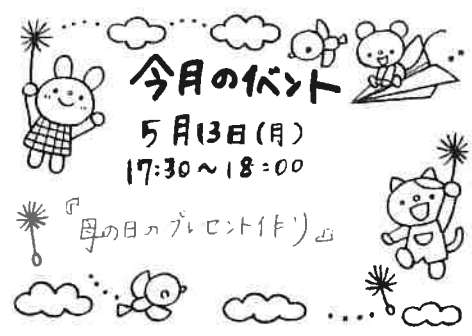 今月のイベント
5月13日(月)
17:30~18:00
『母の日のプレゼント作り』